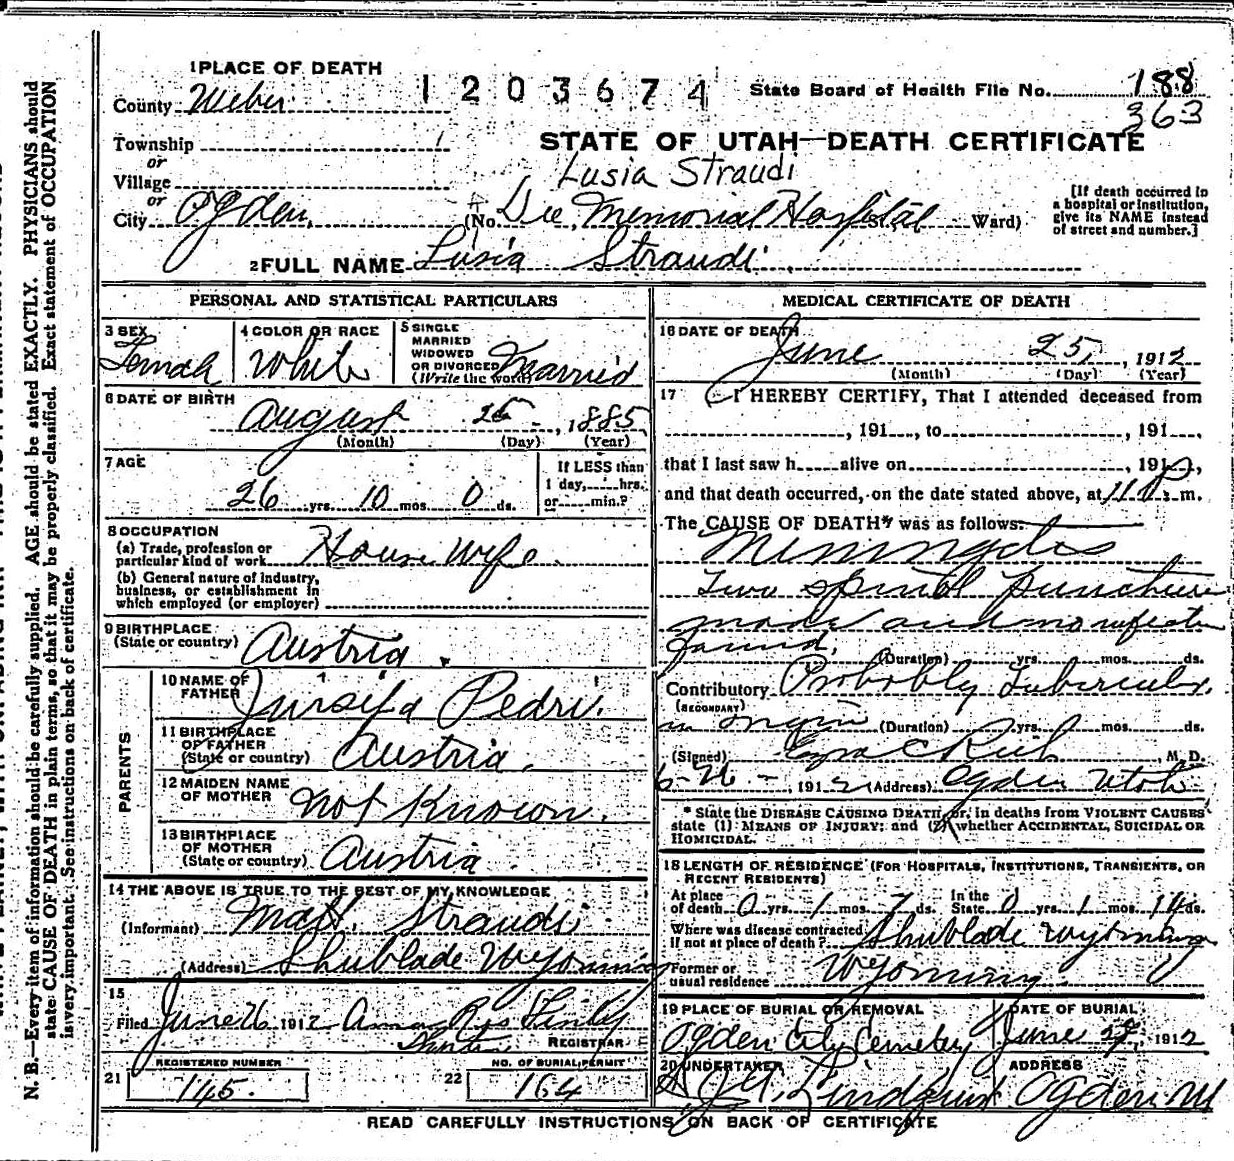 1 PLACE OF DEATH
1203674
State Board of Health File No. 188
363
County Weber
Township
or
Village
or
City Ogden,
STATE OF UTAH—DEATH CERTIFICATE
Lusia Straudi
(No. Dee Memorial Hospital St. Ward)
[If death occurred in
a hospital or institution,
give its NAME instead
of street and number.]
2 FULL NAME Lusia Straudi
PERSONAL AND STATISTICAL PARTICULARS
3 SEX
Female
4 COLOR OR RACE
White
5 SINGLE
MARRIED
WIDOWED
OR DIVORCED
(Write the word)
Married
6 DATE OF BIRTH
August 25, 1885
(Month) (Day) (Year)
7 AGE
26 yrs. 10 mos. 0 ds.
If LESS than
1 day, hrs.
or min.?
8 OCCUPATION
(a) Trade, profession or
particular kind of work House Wife
(b) General nature of industry,
business, or establishment in
which employed (or employer)
9 BIRTHPLACE
(State or country) Austria.
PARENTS
10 NAME OF
FATHER Pedri.
11 BIRTHPLACE
OF FATHER
(State or country) Austria.
12 MAIDEN NAME
OF MOTHER not Known.
13 BIRTHPLACE
OF MOTHER
(State or country) Austria.
14 THE ABOVE IS TRUE TO THE BEST OF MY KNOWLEDGE
(Informant) Matt. Straudi
(Address) Shublade Wyoming
15
Filed June 26 1912
REGISTRAR
21 REGISTERED NUMBER
145.
22 NO. OF BURIAL PERMIT
164
MEDICAL CERTIFICATE OF DEATH
16 DATE OF DEATH
June 25, 1912
(Month) (Day) (Year)
17 I HEREBY CERTIFY, That I attended deceased from
, 191 , to , 191 ,
that I last saw h alive on , 191 ,
and that death occurred, on the date stated above, at m.
The CAUSE OF DEATH* was as follows:
Meningitis
Two spinal punctures
made and no
found.
(Duration) yrs. mos. ds.
Contributory Probably Tubercular
(SECONDARY)
in (Duration) yrs. mos. ds.
(Signed) Ezra C Rich, M. D.
6-26-, 1912 (Address) Ogden Utah
* State the DISEASE CAUSING DEATH, or, in deaths from VIOLENT CAUSES
state (1) MEANS OF INJURY: and (2) whether ACCIDENTAL, SUICIDAL OR
HOMICIDAL.
18 LENGTH OF RESIDENCE (FOR HOSPITALS, INSTITUTIONS, TRANSIENTS, OR
RECENT RESIDENTS)
At place
of death 0 yrs. 1 mos. 7 ds.
In the
State 0 yrs. 1 mos. 14 ds.
Where was disease contracted
if not at place of death? Shublade Wyoming
Former or
usual residence Wyoming
19 PLACE OF BURIAL OR REMOVAL
Ogden City Cemetery
DATE OF BURIAL
June 27, 1912
20 UNDERTAKER
Lindquist
ADDRESS
Ogden, U
READ CAREFULLY INSTRUCTIONS ON BACK OF CERTIFICATE
N. B.—Every item of information should be carefully supplied. AGE should be stated EXACTLY. PHYSICIANS should
state CAUSE OF DEATH in plain terms, so that it may be properly classified. Exact statement of OCCUPATION
is very important. See instructions on back of certificate.